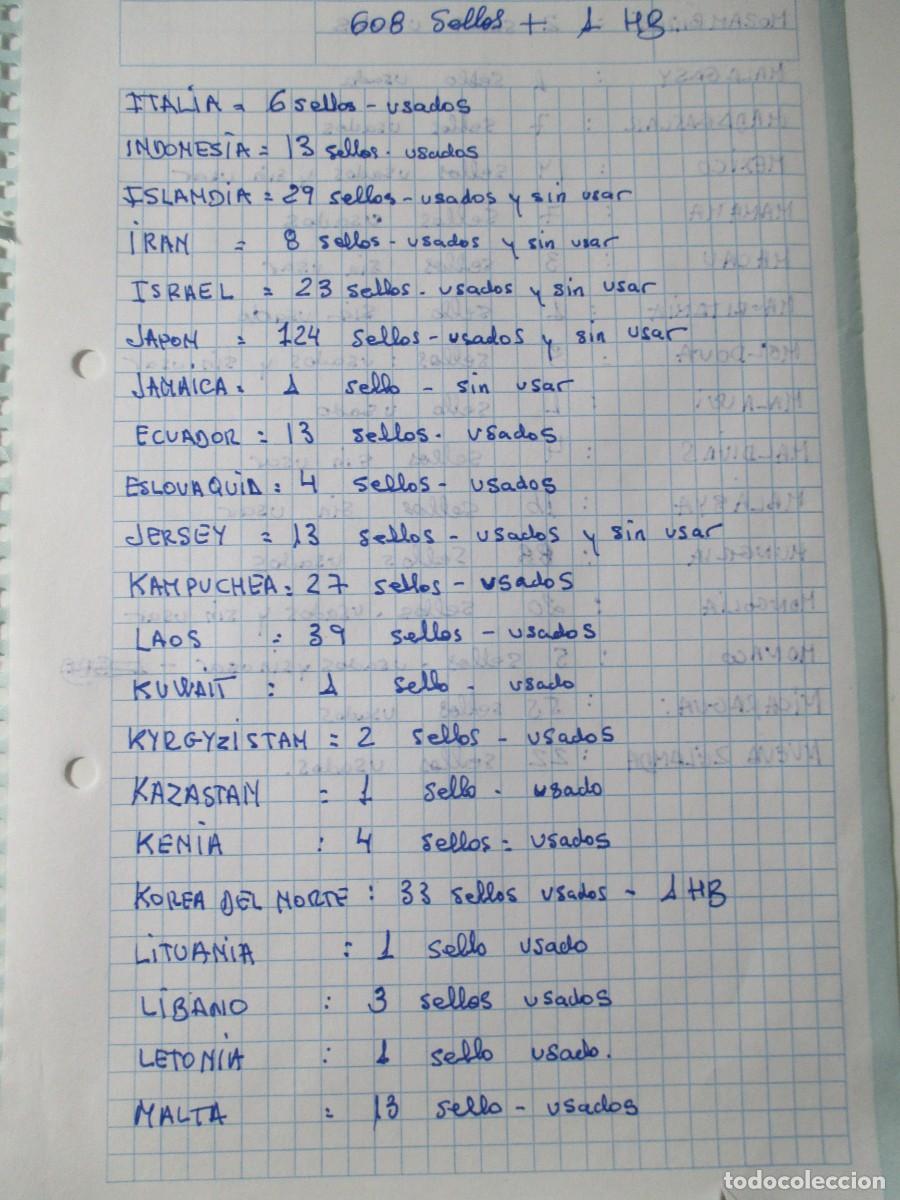 608 Sellos + 1 HB.
ITALIA = 6 sellos - usados
INDONESIA = 13 sellos. usados
ISLANDIA = 29 sellos - usados y sin usar
IRAN = 8 sellos - usados y sin usar
ISRAEL = 23 sellos. usados y sin usar
JAPON = 124 sellos - usados y sin usar
JAMAICA = 1 sello - sin usar
ECUADOR = 13 sellos. usados
ESLOVAQUIA = 4 sellos - usados
JERSEY = 13 sellos - usados y sin usar
KAMPUCHEA = 27 sellos - usados
LAOS : 39 sellos - usados
KUWAIT : 1 sello - usado
KYRGYZISTAN = 2 sellos - usados
KAZASTAN = 1 sello - usado
KENIA : 4 sellos = usados
KOREA DEL NORTE : 33 sellos usados - 1 HB
LITUANIA : 1 sello usado
LIBANO : 3 sellos usados
LETONIA : 1 sello usado.
MALTA = 13 sello - usados
todocoleccion